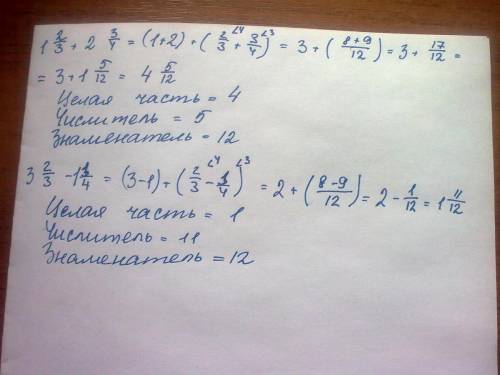 1 2/3 + 2 3/4 = (1+2) + (2/3 ∠4 + 3/4 ∠3) = 3 + (8+9/12) = 3 + 17/12 =
= 3 + 1 5/12 = 4 5/12
Целая часть = 4
Числитель = 5
Знаменатель = 12
3 2/3 - 1 /4 = (3-1) + (2/3 ∠4 - /4 ∠3) = 2 + (8-9/12) = 2 - 1/12 = 1 11/12
Целая часть = 1
Числитель = 11
Знаменатель = 12